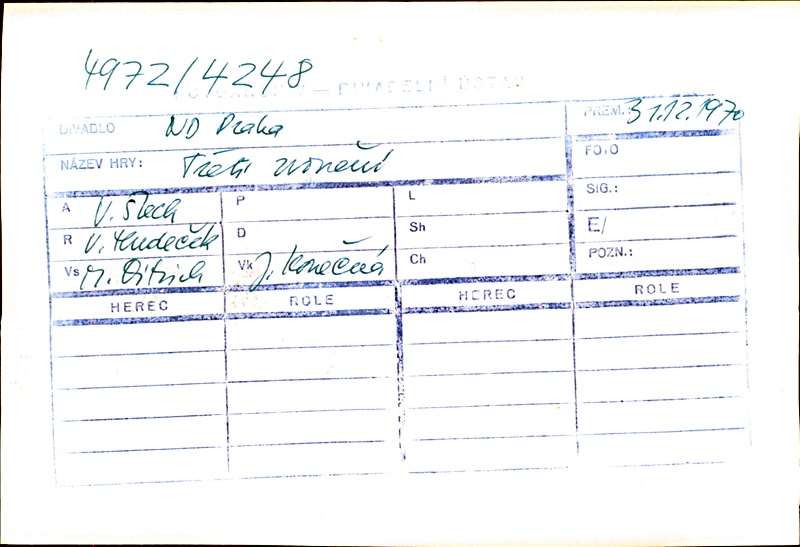 4972/4248
— DIVADELNÍ ÚSTAV
DIVADLO ND Praha
PREM.: 31.12.1970
NÁZEV HRY: Třetí zvonění
FOTO
A V. Štech
P
L
SIG.:
R V. Hudeček
D
Sh
E/
Vs M. Ditrich
Vk J. Konečná
Ch
POZN.:
HEREC ROLE HEREC ROLE